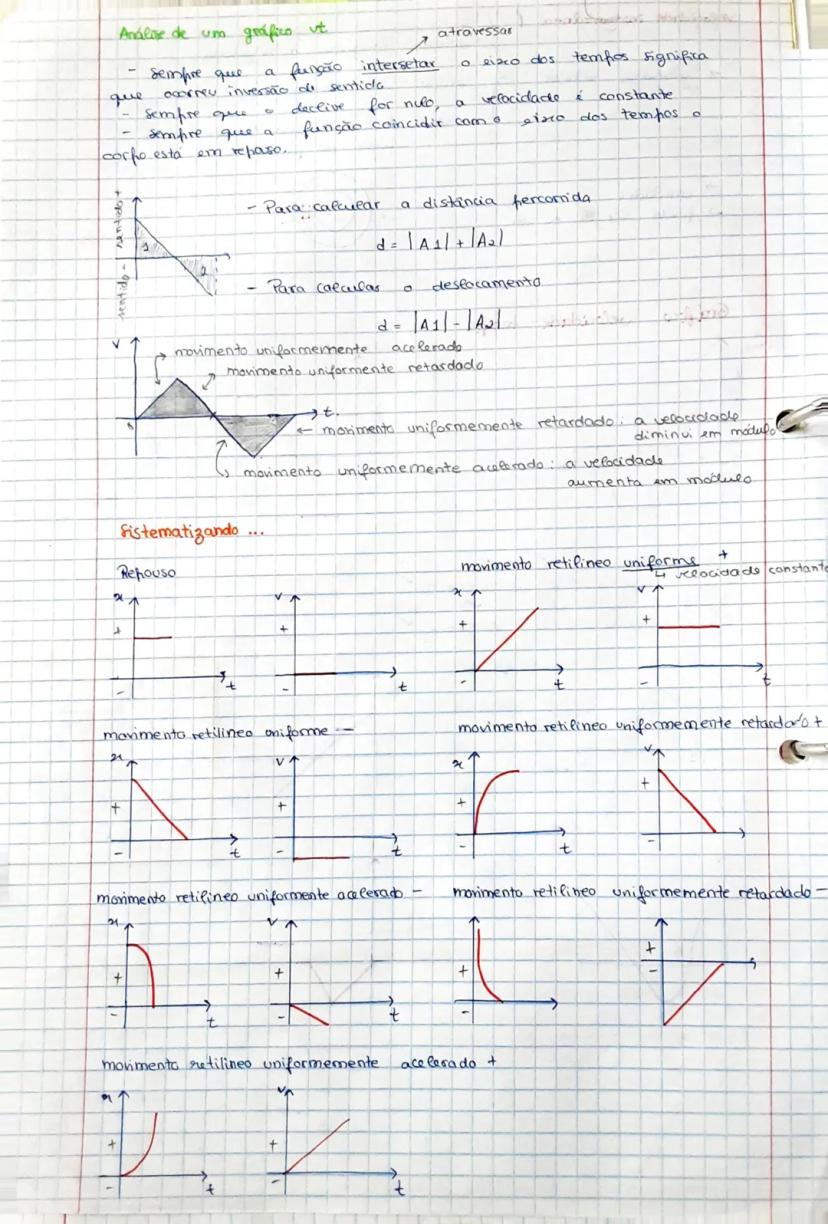 Análise de um gráfico vt
atravessar
- sempre que a função intersetar o eixo dos tempos significa
que ocorreu inversão de sentido
- sempre que o declive for nulo, a velocidade é constante
- sempre que a função coincidir com o eixo dos tempos o
corpo está em repouso.
sentido - sentido +
1
2
- Para calcular a distância percorrida
d = |A1| + |A2|
- Para calcular o deslocamento
d = |A1| - |A2|
v
movimento uniformemente acelerado
movimento uniformemente retardado
t.
movimento uniformemente retardado: a velocidade
diminui em módulo
movimento uniformemente acelerado: a velocidade
aumenta em módulo
Sistematizando ...
Repouso
movimento retilíneo uniforme +
velocidade constante
x + - t
v + - t
x + - t
v + - t
movimento retilíneo uniforme -
movimento retilíneo uniformemente retardado +
x + - t
v + - t
x + - t
v + -
movimento retilíneo uniformente acelerado -
movimento retilíneo uniformemente retardado -
x + - t
v + - t
+ -
+ -
movimento retilíneo uniformemente acelerado +
x + - t
v + - t